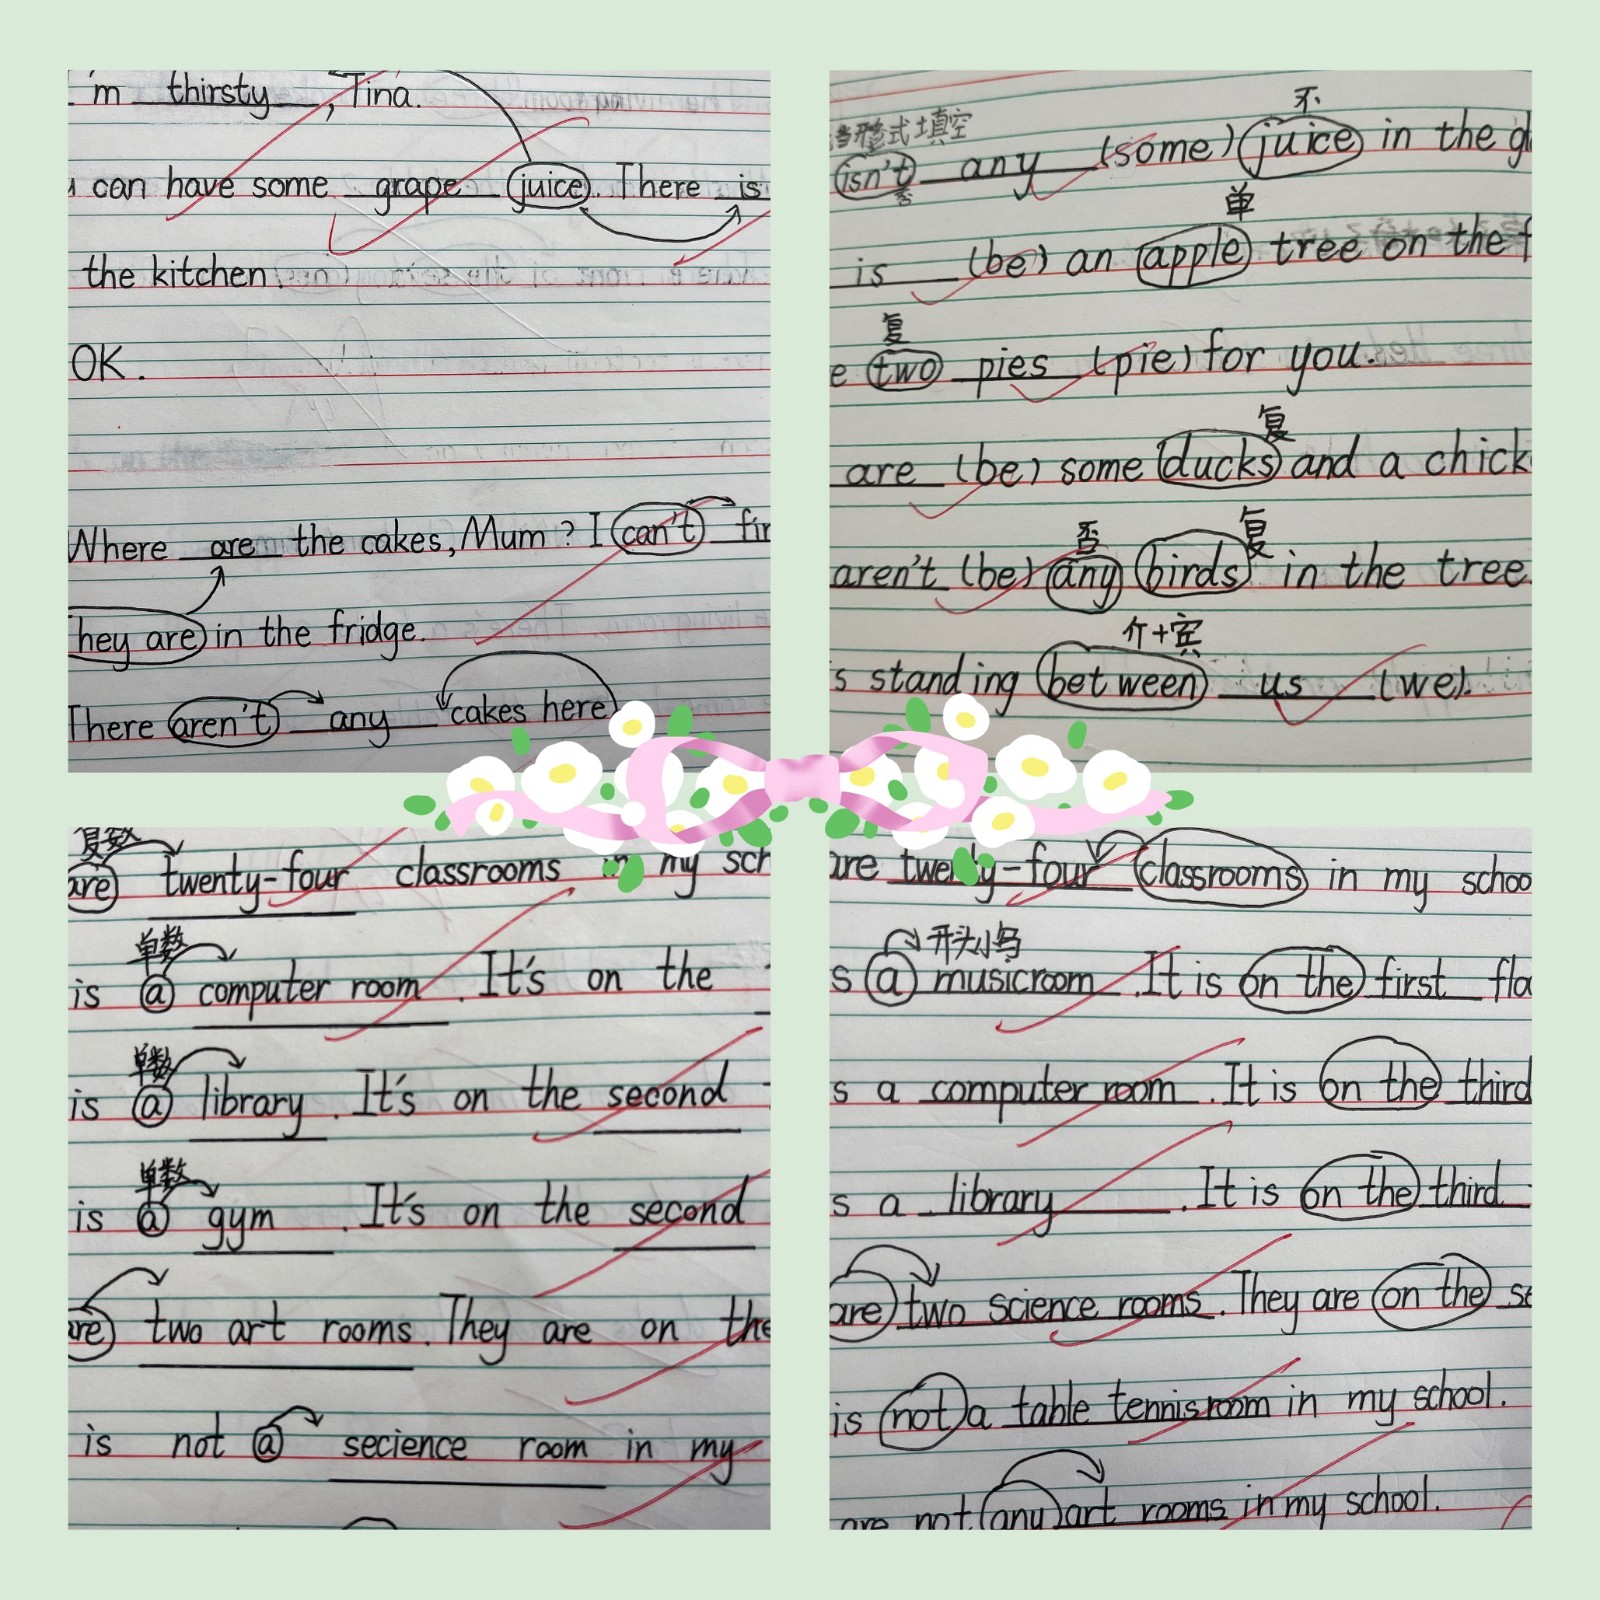 'm thirsty, Tina.
can have some grape juice. There is
the kitchen.
OK.
Where are the cakes, Mum? I can't
They are in the fridge.
There aren't any cakes here
形式填空
不
isn't any (some) juice in the
否
单
is (be) an apple tree on the
复
two pies (pie) for you.
复
are (be) some ducks and a chick
否 复
aren't (be) any birds in the tree
介+宾
s standing between us (we).
复数
are twenty-four classrooms in my sch
单数
is a computer room. It's on the
单数
is a library. It's on the second
单数
is a gym. It's on the second
are two art rooms. They are on the
is not a secience room in my
are twenty-four classrooms in my schoo
开头小写
s a musicroom. It is on the first flo
s a computer room. It is on the third
s a library. It is on the third
are two science rooms. They are on the se
is not a table tennis room in my school.
are not any art rooms in my school.